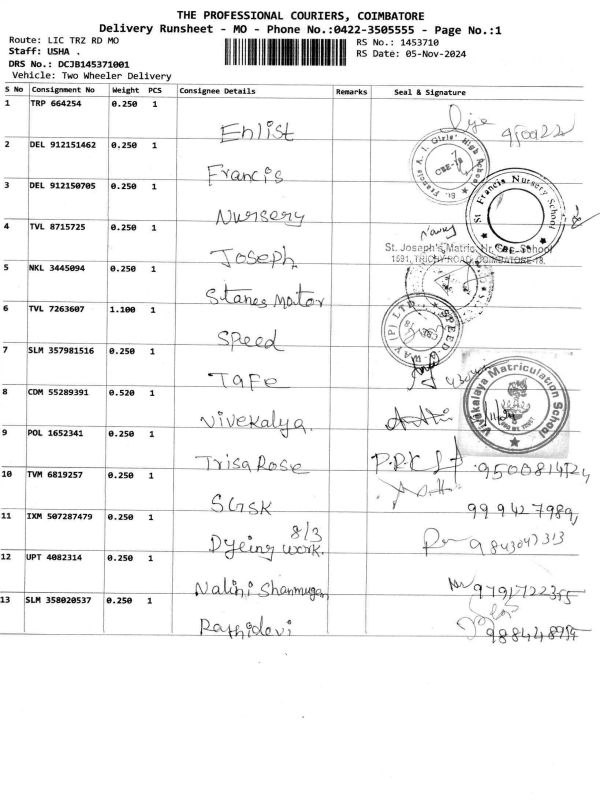 THE PROFESSIONAL COURIERS, COIMBATORE
Delivery Runsheet - MO - Phone No.:0422-3505555 - Page No.:1
Route: LIC TRZ RD MO
RS No.: 1453710
Staff: USHA .
RS Date: 05-Nov-2024
DRS No.: DCJB145371001
Vehicle: Two Wheeler Delivery
S No Consignment No Weight PCS Consignee Details Remarks Seal & Signature
1 TRP 664254 0.250 1
Enlist 950022
2 DEL 912151462 0.250 1
Francis
St. Francis A. I. Girls' High School CBE-18
3 DEL 912150705 0.250 1
Nursery
St Francis Nursery School
4 TVL 8715725 0.250 1
Joseph
St. Joseph's Matric. Hr. Sec. School
1591, TRICHY ROAD, COIMBATORE-18.
5 NKL 3445094 0.250 1
Stanes Motor
6 TVL 7263607 1.100 1
Speed
SPEED-A-WAY (P) LTD.
7 SLM 357981516 0.250 1
TaFe
8 CDM 55289391 0.520 1
Vivekalya.
Vivekalaya Matriculation School
9 POL 1652341 0.250 1
Trisa Rose
10 TVM 6819257 0.250 1
SGSK
11 IXM 507287479 0.250 1
8/3
Dyeing work. 9843047313
12 UPT 4082314 0.250 1
Nalini Shanmugan
13 SLM 358020537 0.250 1
Rathidevi